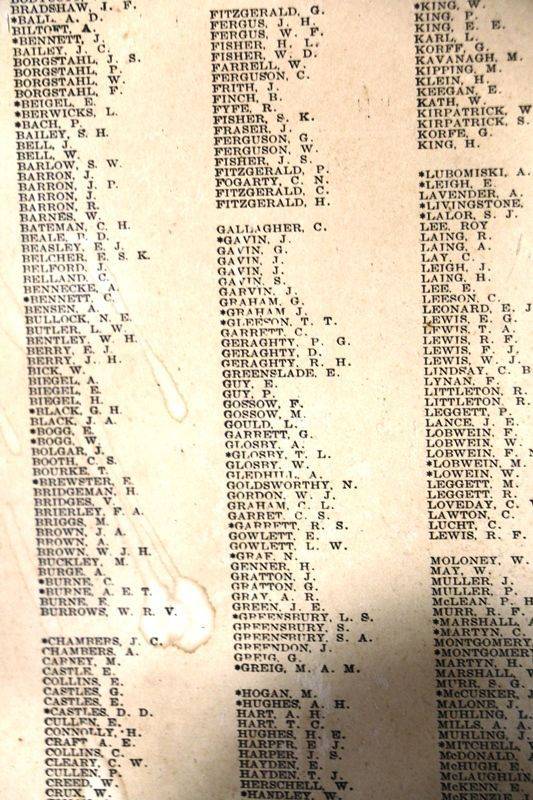 BRADSHAW, J. F.
*BALL, A. D.
BILTOFT, A.
*BENNETT, J.
BAILEY, J. C.
BORGSTAHL, J. S.
BORGSTAHL, P.
BORGSTAHL, W.
BORGSTAHL, F.
*BEIGEL, E.
*BERWICKS, L.
*BACH, P.
BAILEY, S. H.
BELL, J.
BELL, W.
BARLOW, S. W.
BARRON, J.
BARRON, J. P.
BARRON, J.
BARRON, R.
BARNES, W.
BATEMAN, C. H.
BEALE, P. D.
BEASLEY, E. J.
BELCHER, E. S. K.
BELFORD, J.
BELLAND, C.
BENNECKE, A.
*BENNETT, C.
BENSEN, A.
BULLOCK, N. E.
BUTLER, L. W.
BENTLEY, W. H.
BERRY, E. J.
BERRY, J. H.
BICK, W.
BIEGEL, A.
BIEGEL, E.
BIEGEL, H.
*BLACK, G. H.
BLACK, J. A.
*BOGG, E.
*BOGG, W.
BOLGAR, J.
BOOTH, C. S.
BOURKE, T.
*BREWSTER, E.
BRIDGEMAN, H.
BRIDGES, V.
BRIERLEY, F. A.
BRIGGS, M.
BROWN, J. A.
BROWN, A.
BROWN, W. J. H.
BUCKLEY, M.
BURGE, A.
*BURNE, C.
*BURNE, A. E. T.
BURNE, E.
BURROWS, W. R. V.
*CHAMBERS, J. C.
CHAMBERS, A.
CARNEY, M.
CASTLE, E.
COLLINS, E.
CASTLES, G.
CASTLES, E.
*CASTLES, D. D.
CULLEN, E.
CONNOLLY, H.
CRAFT, A. E.
COLLINS, C.
CLEARY, C. W.
CULLEN, P.
CREED, W.
CRUX, W.
FITZGERALD, G.
FERGUS, J. H.
FERGUS, W. F.
FISHER, H. L.
FISHER, W. D.
FARRELL, W.
FERGUSON, C.
FRITH, J.
FINCH, B.
FYFE, R.
FISHER, S. K.
FRASER, J.
FERGUSON, G.
FERGUSON, W.
FISHER, J. S.
FITZGERALD, P.
FOGARTY, C. N.
FITZGERALD, C.
FITZGERALD, H.
GALLAGHER, C.
*GAVIN, J.
GAVIN, G.
GAVIN, J.
GAVIN, J.
GAVIN, S.
GARVIN, J.
GRAHAM, G.
*GRAHAM, J.
*GLEESON, T. T.
GARRETT, C.
GERAGHTY, P. G.
GERAGHTY, D.
GERAGHTY, R. H.
GREENSLADE, E.
GUY, E.
GUY, P.
GOSSOW, F.
GOSSOW, M.
GOULD, L.
GARRETT, G.
GLOSBY, A.
*GLOSBY, T. L.
GLOSBY, W.
GLEDHILL, A.
GOLDSWORTHY, N.
GORDON, W. J.
GRAHAM, C. L.
GARRET, C. S.
*GARRETT, R. S.
GOWLETT, E.
GOWLETT, L. W.
*GRAF, N.
GENNER, H.
GRATTON, J.
GRATTON, G.
GRAY, A. R.
GREEN, J. E.
*GREENSBURY, L. S.
GREENSBURY, S.
GREENSBURY, S. A.
GREENDON, J.
GREIG, G.
*GREIG, M. A. M.
*HOGAN, M.
*HUGHES, A. H.
HART, A. H.
HART, T. C.
HUGHES, H. E.
HARPER, E. J.
HARPER, J. S.
HAYDEN, E.
HAYDEN, T. J.
HERSCHELL, W.
*HANDLEY, W.
*KING, W.
KING, P.
KING, E. E.
KARL, L.
KORFF, G.
KAVANAGH, M.
KIPPING, M.
KLEIN, H.
KEEGAN, E.
KATH, W.
KIRPATRICK, W
KIRPATRICK, S.
KORFE, G.
KING, H.
*LUBOMISKI, A.
*LEIGH, E.
LAVENDER, A.
*LIVINGSTONE,
*LALOR, S. J.
LEE, ROY
LAING, R.
LAING, A.
LAY, C.
LEIGH, J.
LAING, H.
LEE, E.
LEESON, C.
LEONARD, E. J
LEWIS, E. G.
LEWIS, T. A.
LEWIS, R. F.
LEWIS, F. J.
LEWIS, W. J.
LINDSAY, C. B
LYNAN, F.
LITTLETON, R.
LITTLETON, R.
LEGGETT, P.
LANCE, J. E.
LOBWEIN, F.
LOBWEIN, W.
LOBWEIN, F. N
*LOBWEIN, M.
*LOWEIN, W.
LEGGETT, M.
LEGGETT, R.
LOVEDAY, C. V
LAWTON, C.
LUCHT, C.
LEWIS, R. F.
MOLONEY, W.
MAY, W.
MULLER, J.
MULLER, P.
McLEAN, P. H
MURR, R. F.
*MARSHALL, A
*MARTYN, C.
MONTGOMERY,
*MONTGOMERY
MARTYN, H.
MARSHALL, W
MURR, S. G.
*McCUSKER, J
MALONE, J.
MUHLING, L.
MILLS, A. A.
MUHLING, J.
*MITCHELL, W
McDONALD, A
McHUGH, E.
McLAUGHLIN
McKENN, E.
McKENZIE, J.